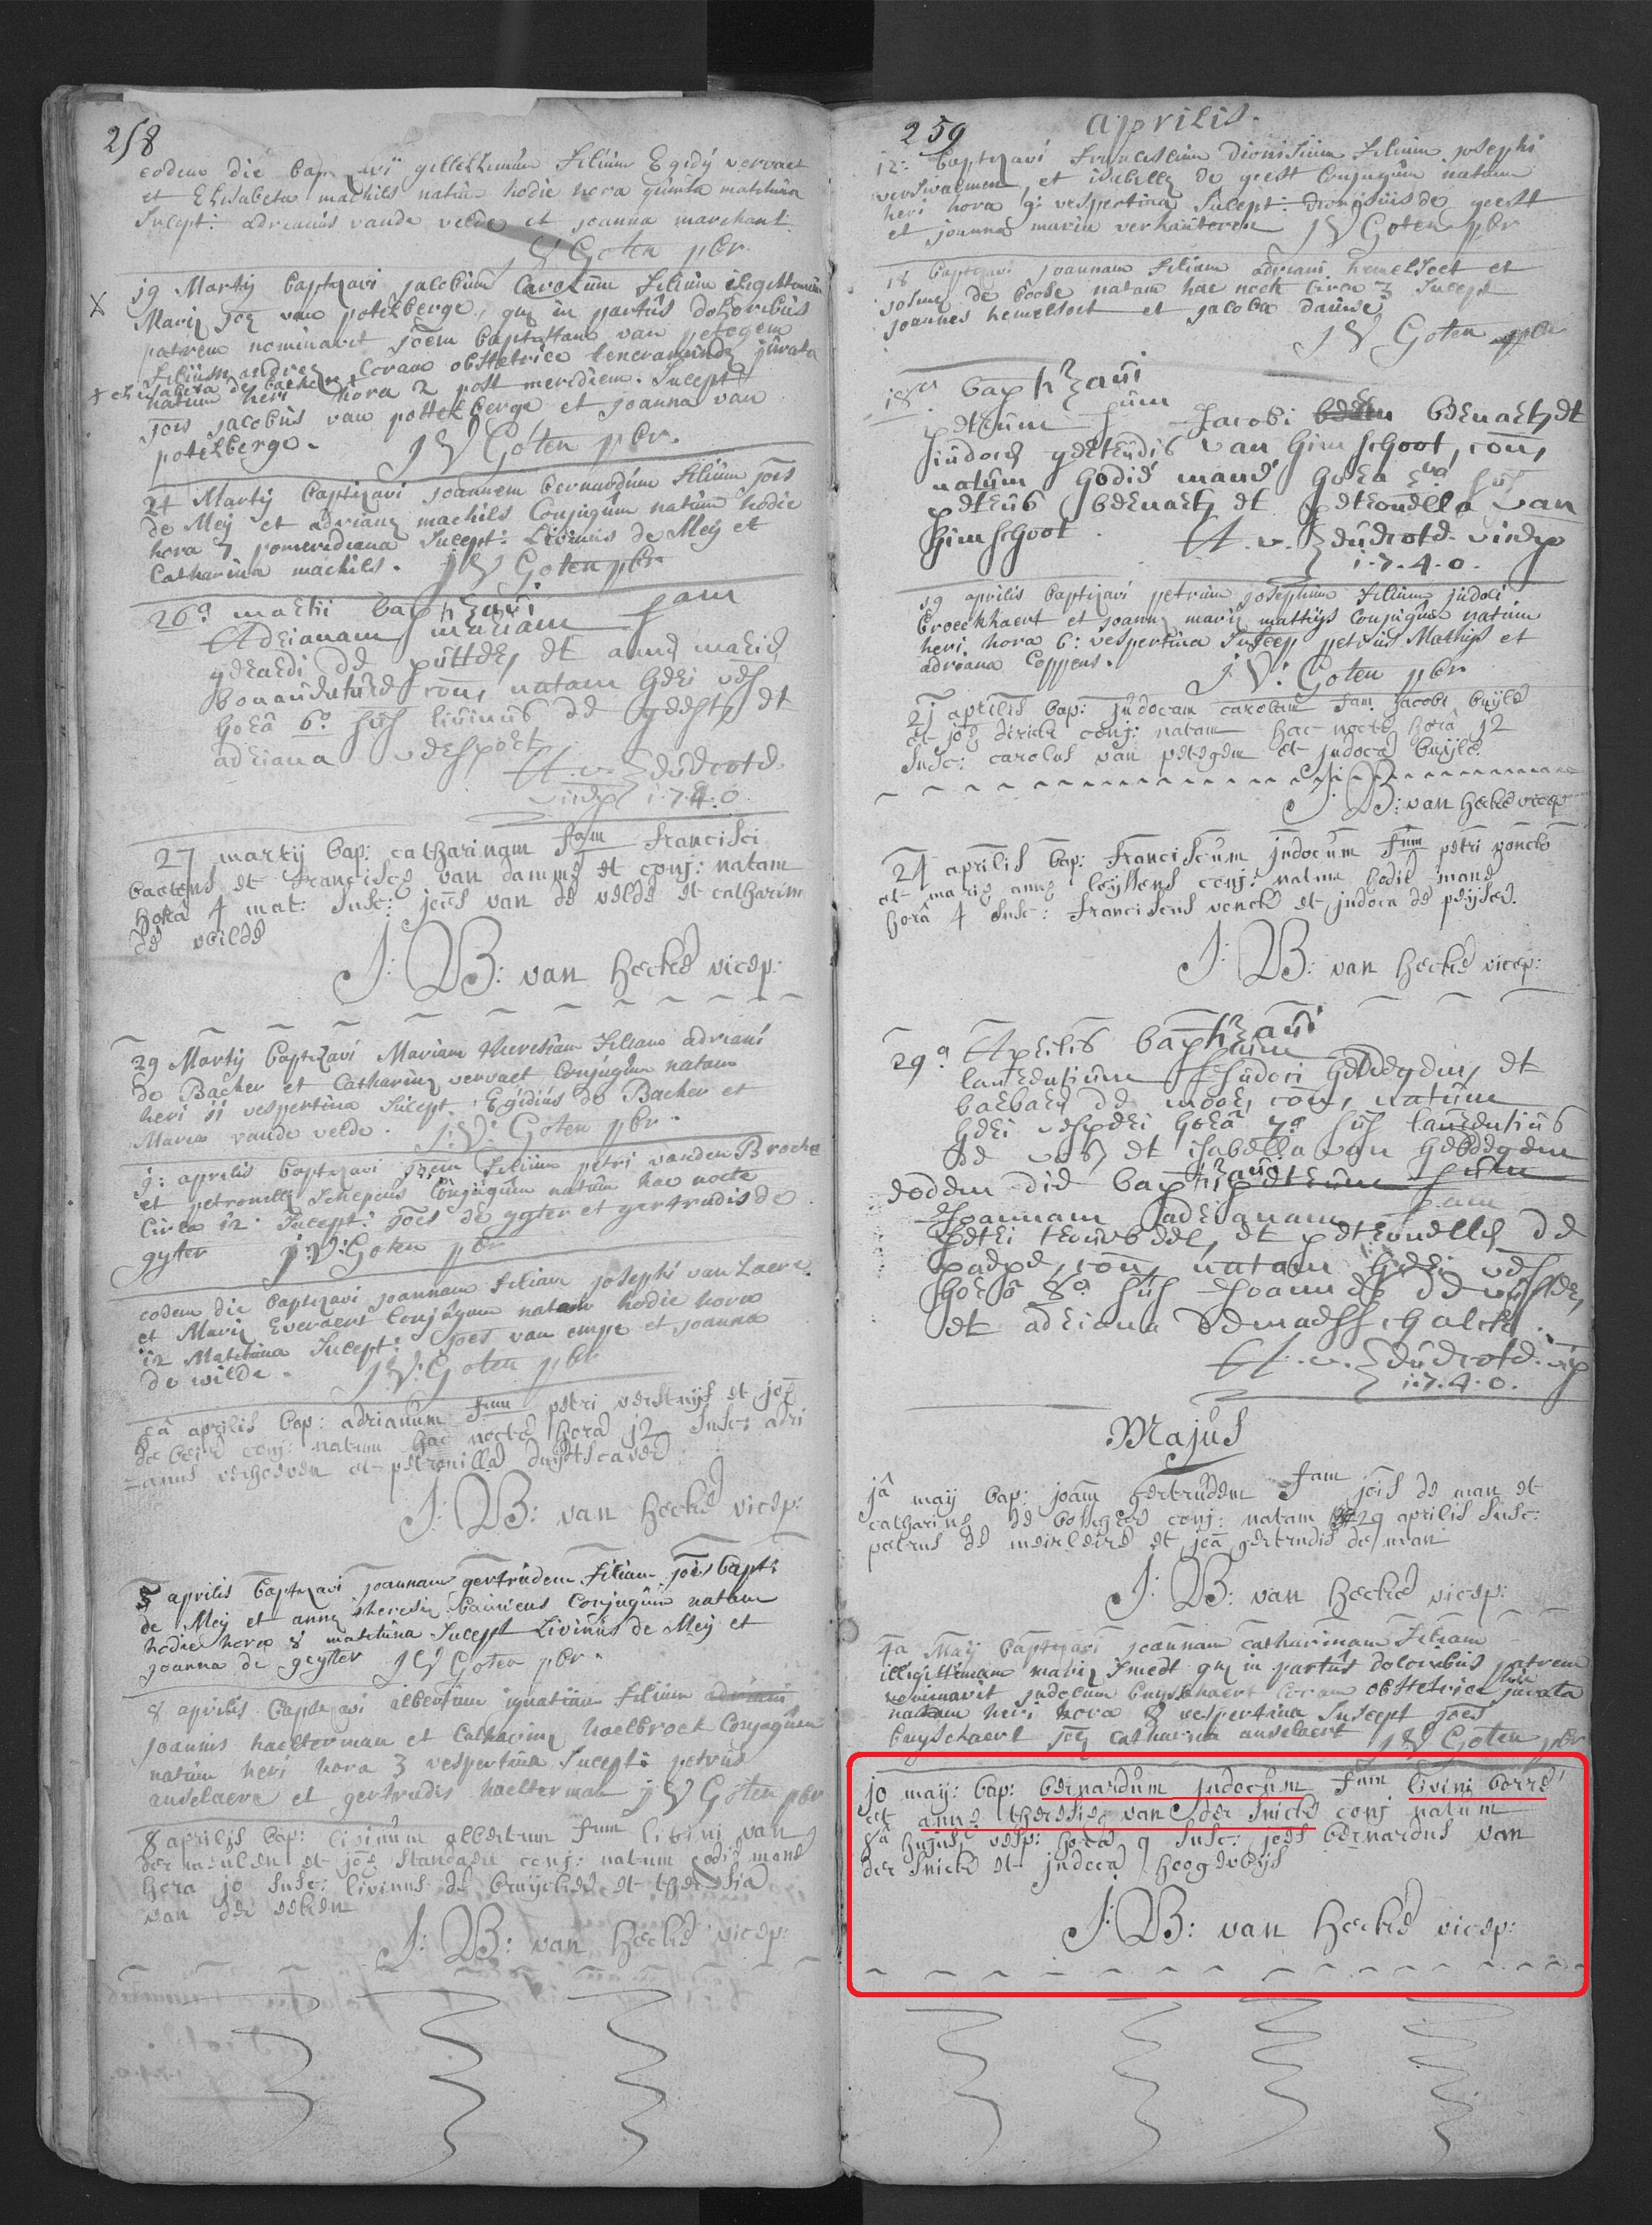 258
eodem die baptizavi gillelmum filium Egidij vervaet
et Elisabeta machils natum hodie hora quinta matutina
Sucept: adrianus vande velde et joanna marchant
J V Goten pbr
19 Martij baptizavi jacobum Carolum filium illigittimum
Mariæ joæ van potelberge, quæ in partus doloribus
patrem nominavit joem baptistam van petegem
filium andreæ coram obstetrice jurata
+ et isabella de backer
natum heri hora 2 post meridiem. Sucept
jois jacobus van pottelberge et joanna van
potelberge. J V Goten pbr.
24 Martij baptizavi joannem bernardum filium jois
de Meij et adrianæ machils Conjugum natum hodie
hora 7 pomeridiana Sucept: Livinus de Meij et
Catharina machils. J V Goten pbr
26a martii baptizavi
Adrianam mariam fam
gerardi de putte, et annæ mariæ
bonaventure con, natam heri vesp
hora 6a sus livinus de geest, et
adriana vdespoet
vicep 1.7.4.0.
27 martij bap: catharinam fam francisci
baetens et franciscæ van damme et conj: natam
hora 4 mat: susc: joes van de velde et catharina
de wilde
J: B: van Hecke vicep:
29 Martij baptizavi Mariam Theresiam filiam adriani
de Backer et Catharinæ vervaet Conjugum natam
heri 11 vespertina Sucept. Egidius de Backer et
Maria vande velde. J: V: Goten pbr.
1: aprilis baptizavi joem filium petri vanden Broche
et petronillæ Schepens Conjugum natum hac nocte
circa 12 Sucept: joes de gyter et gertrudis de
gyter J: V: Goten pbr
eodem die baptizavi joannam filiam josephi van Laere
et Mariæ Everaert Conjugum natam hodie hora
12 Matutina Sucept: joes van empe et joanna
de wilde. J V: Goten pbr
aprilis bap: adrianum fum petri verstuijf et joæ
de beir conj: natum hac nocte hora j2 susc: adri
-anus verhoeven et petronilla duijtscaver
J: B: van Hecke vicep:
5 aprilis baptizavi joannam gertrudem filiam jois bapt:
de Meij et annæ theresiæ bauwens Conjugum natam
hodie hora 8 matutina Sucept Livinus de Meij et
joanna de geyter J V Goten pbr.
8 aprilis baptizavi albertum ignatium filium adriani
joannis haelterman et Catharinæ haelbroek Conjugum
natum heri hora 3 vespertina Sucept: petrus
anselaere et gertrudis haelterman J V Goten pbr
8 aprilis bap: livinum albertum fum livini van
der meulen et joæ standaert conj: natum hodie mane
hora jo susc: livinus de bruijcker et theresia
van der eeken
J: B: van Hecke vicep:
259 aprilis.
12: baptizavi franciscum Dionisium filium josephi
verswalmen, et isabellæ de geest Conjugum natum
heri hora 9: vespertina Sucept: Dionisius de geest
et joanna maria verhauteren J V Goten pbr
18 baptizavi joannam filiam adriani hemelsoet et
josinæ de boose natam hac nocte circa 3 Sucept
joannes hemelsoet et jacoba dauwe
J V Goten pbr
18a baptizavi
petrum fum Jacobi bevaet, et
judocæ gertrudis van himschoot, con,
natum hodie mane hora sus
petrus bevaet, et petronella van
himschoot. vicep
1.7.4.0.
19 aprilis baptizavi petrum josephum filium judoci
broeckhaert et joannæ mariæ mattijs Conjugum natum
heri hora 6: vespertina Suscep petrus Mathijs et
adriana Coppens. J V: Goten pbr
21 aprilis bap: judocam carolam fam jacobi buijle
et joæ dirickx conj: natam hac nocte hora j2
Susc: carolus van petegem et judoca buijle
J: B: van Hecke vicep
24 aprilis bap: franciscum judocum fum petri poncke
et mariæ annæ leyssens conj: natum hodie mane
hora 4 susc: franciscus vonck et judoca de peijser.
J: B: van Hecke vicep:
29a Aprilis baptizavi
laurentium fum judoci heldegem, et
barbaræ de moor, con, natum
heri vesperi hora 7a sus laurentius
de vos, et isabella van heldegem
eodem die baptizavi petrum fum
Joannam adrianam fam
petri tenvrede, et petronellæ de
paepe, con, natam heri vesp
hora 8a sus Joannes de wilde,
et adriana demaesschalck.
vicep
1.7.4.0.
Majus
ja maij bap: joam gertrudem fam jois de man et
catharinæ de bosscher conj: natam 29 aprilis susc:
petrus de meirleire et joa gertrudis de man
J: B: van Hecke vicep:
4a Maij baptizavi joannam catharinam filiam
illigittimam mariæ smedt quæ in partus doloribus patrem
nominavit judocum buysschaert coram obstetrice jurata
natam heri hora 8 vespertina Suscept joes
buysschaert joæ catharina anselaert J V Goten pbr
jo maij: bap: bernardum judocum fum livini borre
et annæ theresiæ van der snickt conj natum
8a hujus vesp: hora 9 susc: joes bernardus van
der snickt et judoca hoogewijs
J: B: van Hecke vicep: